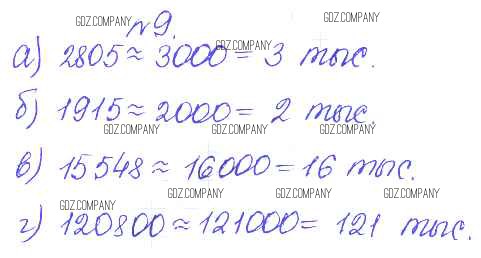 GDZ.COMPANY GDZ.COMPANY
№9.
GDZ.COMPANY
а) 2805≈3000=3 тыс.
б) 1915≈2000=2 тыс.
GDZ.COMPANY GDZ.COMPANY GDZ.COMPANY
в) 15548≈16000=16 тыс.
GDZ.COMPANY GDZ.COMPANY GDZ.COMPANY
GDZ.COMPANY
г) 120800≈121000=121 тыс.